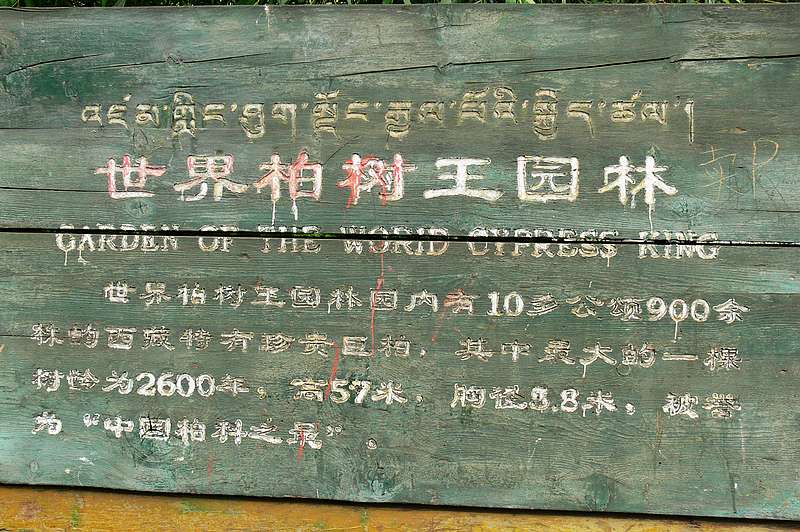 འཛམ་གླིང་ཤུག་སྡོང་རྒྱལ་པོའི་གླིང་ཚལ།
世界柏树王园林
GARDEN OF THE WORID CYPRESS KING
世界柏树王园林园内有10多公顷900余
株的西藏特有珍贵巨柏，其中最大的一棵
树龄为2600年。高57米，胸径5.8米，被誉
为“中国柏科之最”。